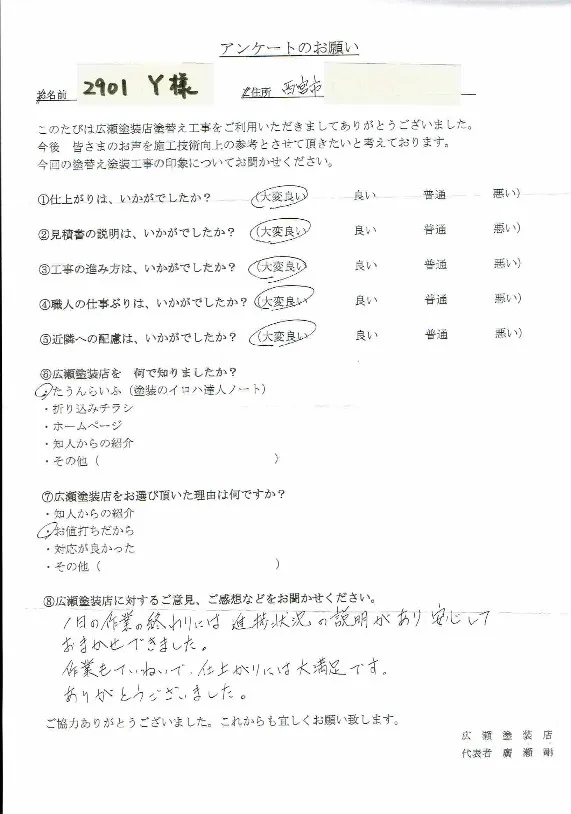 アンケートのお願い
お名前 2901 Y様 ご住所 西宮市
このたびは広瀬塗装店塗替え工事をご利用いただきましてありがとうございました。
今後 皆さまのお声を施工技術向上の参考とさせて頂きたいと考えております。
今回の塗替え塗装工事の印象についてお聞かせください。
①仕上がりは、いかがでしたか？ (大変良い 良い 普通 悪い)
②見積書の説明は、いかがでしたか？ (大変良い 良い 普通 悪い)
③工事の進み方は、いかがでしたか？ (大変良い 良い 普通 悪い)
④職人の仕事ぶりは、いかがでしたか？ (大変良い 良い 普通 悪い)
⑤近隣への配慮は、いかがでしたか？ (大変良い 良い 普通 悪い)
⑥広瀬塗装店を 何で知りましたか？
・たうんらいふ（塗装のイロハ達人ノート）
・折り込みチラシ
・ホームページ
・知人からの紹介
・その他（ ）
⑦広瀬塗装店をお選び頂いた理由は何ですか？
・知人からの紹介
・お値打ちだから
・対応が良かった
・その他（ ）
⑧広瀬塗装店に対するご意見、ご感想などをお聞かせください。
1日の作業の終わりには 進捗状況の説明があり安心して
おまかせできました。
作業もていねいで、仕上がりには大満足です。
ありがとうございました。
ご協力ありがとうございました。これからも宜しくお願い致します。
広瀬塗装店
代表者 廣瀬 剛